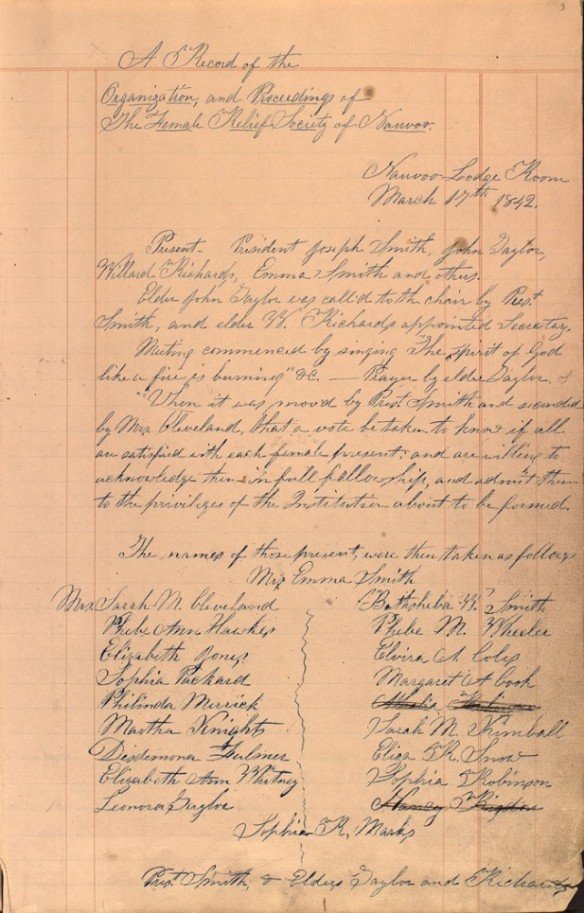 A Record of the
Organization, and Proceedings of
The Female Relief Society of Nauvoo.
Nauvoo Lodge Room
March 17th 1842.
Present— President Joseph Smith, John Taylor,
Willard Richards, Emma Smith and others.
Elder John Taylor was call'd to the chair by Prest.
Smith, and elder W. Richards appointed Secretary.
Meeting commenced by singing "The spirit of God
like a fire is burning" &c. — Prayer by elder Taylor.
When it was mov'd by Prest. Smith and seconded
by Mrs. Cleveland, that a vote be taken to know if all
are satisfied with each female present; and are willing to
acknowledge them in full fellowship, and admit them
to the privileges of the Institution about to be formed.
The names of those present were then taken as follows
Mrs. Emma Smith
Mrs. Sarah M. Cleveland
Phebe Ann Hawkes
Elizabeth Jones
Sophia Packard
Philinda Merrick
Martha Knights
Desdemona Fulmer
Elizabeth Ann Whitney
Leonora Taylor
Bathsheba W. Smith
Phebe M. Wheeler
Elvira A. Coles
Margaret A. Cook
Athalia
Sarah M. Kimball
Eliza R. Snow
Sophia Robinson
Nancy Rigdon
Sophia R. Marks
Prest. Smith, & Elders Taylor and Richards